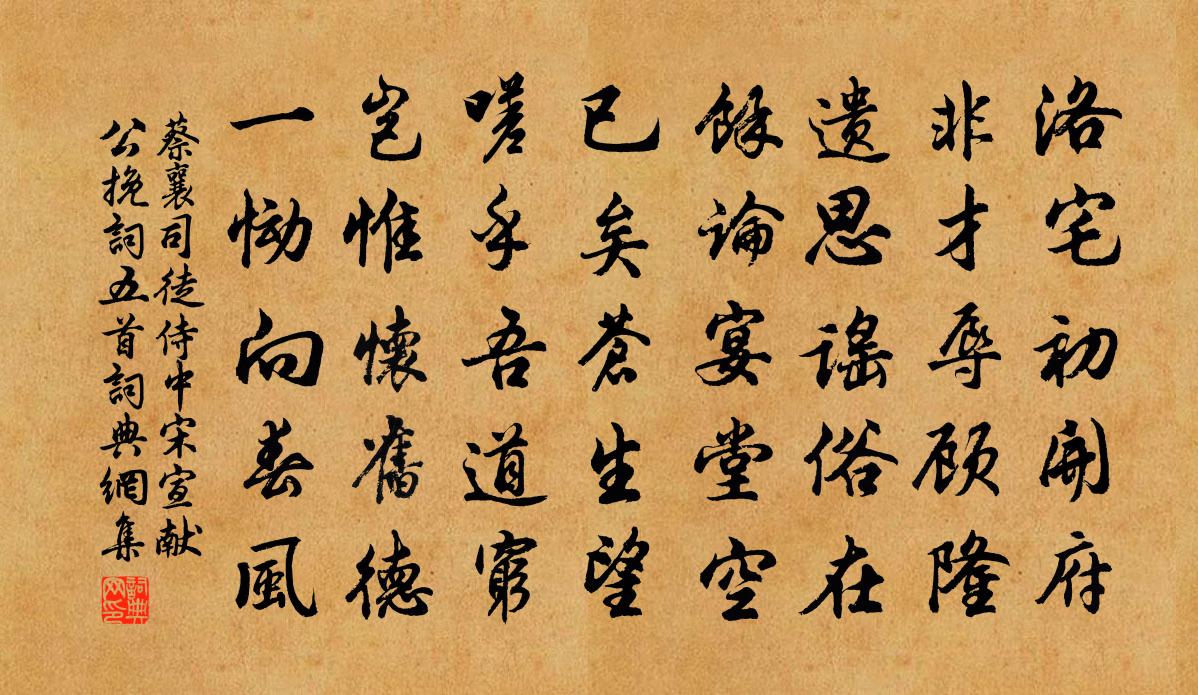 洛宅初開府
非才辱顾隆
遗思謠俗在
餘論宴堂空
已矣蒼生望
嗟乎吾道窮
岂惟懷舊德
一恸向春風
蔡襄司徒侍中宋宣献
公挽詞五首詞典網集
詞典
网印